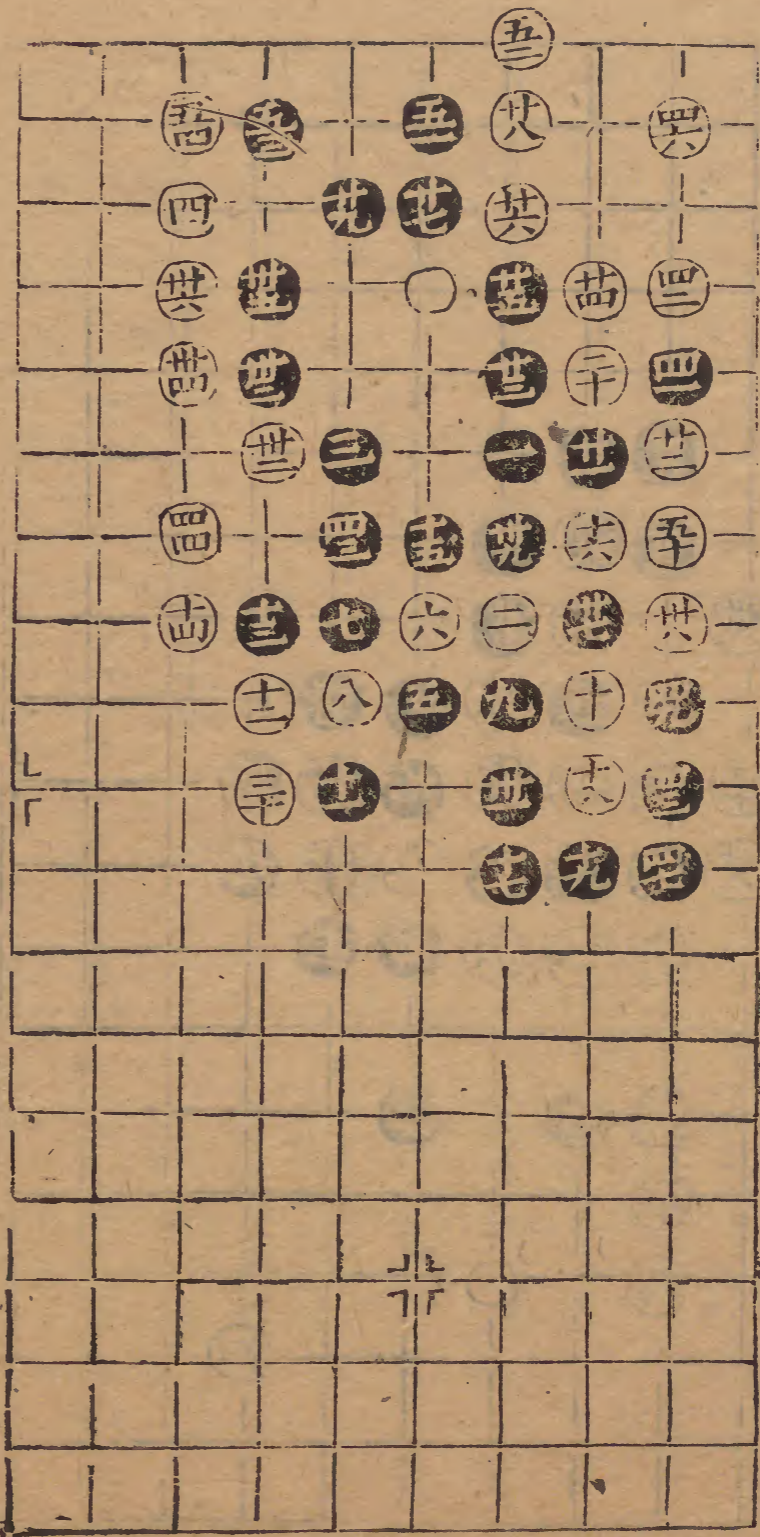 五二
五四 五三 五一 廿八 四六
四 廿九 廿七 廿六
卅六 卅五 廿五 廿四 四二
卅四 卅三 廿三 二十 四一
卅二 三 一 廿一 廿二
四四 四三 十五 卅九 十六 五十
十四 十三 七 六 二 卅七
十二 八 五 九 十 四九
三十 十一 卅一 十八
十七 十九 四七